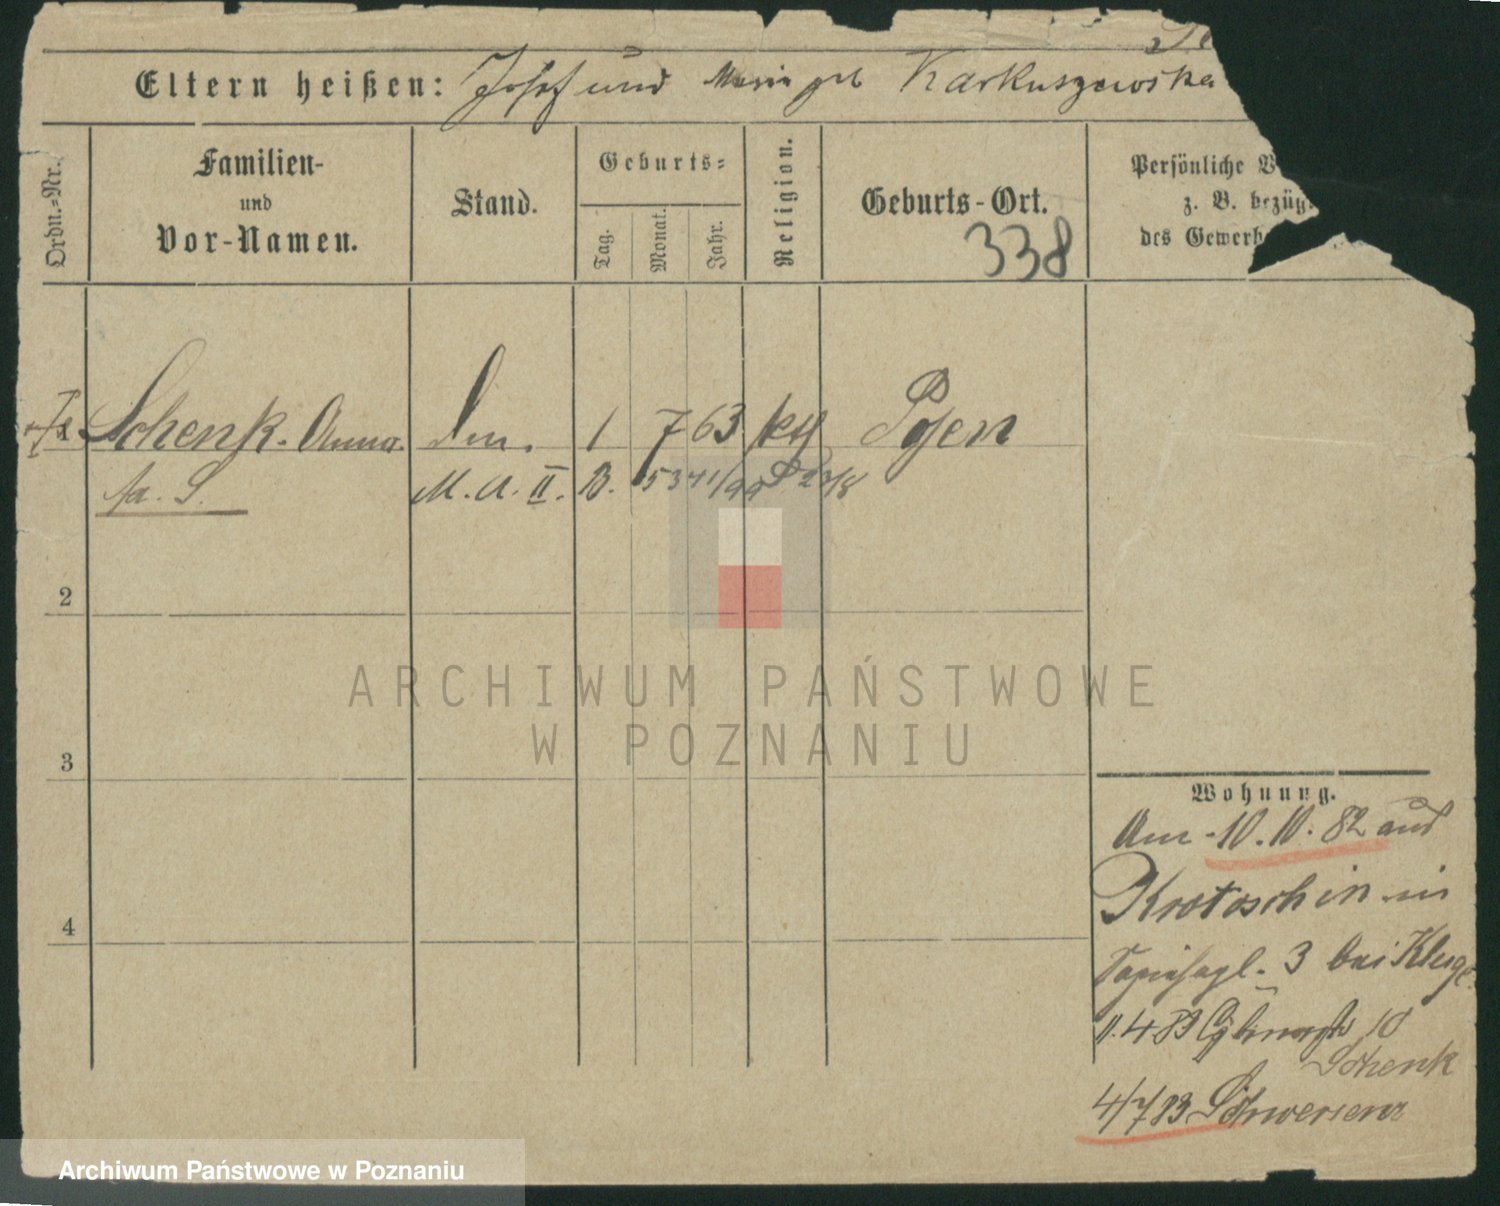 Eltern heißen: Josef und Maria geb Karkuszewska
Ordn.-Nr.
Familien-
und
Vor-Namen.
Stand.
Geburts-
Tag.
Monat.
Jahr.
Religion.
Geburts-Ort.
338
Persönliche
z. B. bezügl.
des Gewerb
1 Schenk Anna. 1 7 63 kth Posen
fa. S. M. A. II. B. 5341/99
2
3
4
Wohnung.
Am 10.10.82 aus
Krotoschin in
3 bei Kluge
11.4 83 10
Schenk
4/7 83 Schwersenz
ARCHIWUM PAŃSTWOWE
W POZNANIU
Archiwum Państwowe w Poznaniu